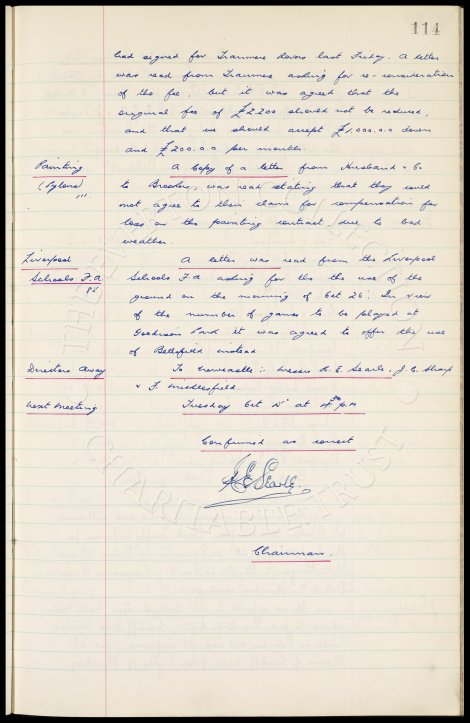 114
had signed for Tranmere Rovers last Friday. A letter
was read from Tranmere asking for re-consideration
of the fee, but it was agreed that the
original fee of £2200 should not be reduced,
and that we should accept £1,000.0.0 down
and £200.0.0 per month.
Painting A Copy of a letter from Husband & Co
(Pylons) to Brookers, was read stating that they could
not agree to their claim for compensation for
loss on the painting contract due to bad
weather.
Liverpool A letter was read from the Liverpool
Schools F.A. Schools F.A. asking for the the use of the
ground on the morning of Oct 26. In view
of the number of games to be played at
Goodison Park it was agreed to offer the use
of Bellefield instead.
Directors Away To Newcastle :- Messrs R. E. Searle, J. C. Sharp
& F. Micklesfield.
Next Meeting Tuesday Oct at p.m
Confirmed as correct
R E Searle.
Chairman.
THE EVERTON COLLECTION
CHARITABLE TRUST